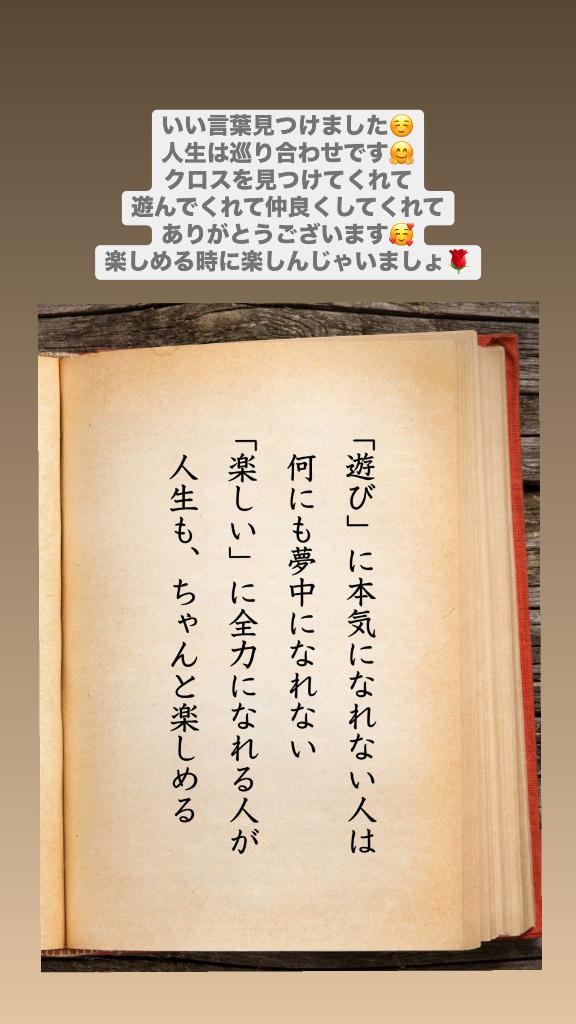 いい言葉見つけました☺️
人生は巡り合わせです🤗
クロスを見つけてくれて
遊んでくれて仲良くしてくれて
ありがとうございます🥰
楽しめる時に楽しんじゃいましょ🌹
「遊び」に本気になれない人は
何にも夢中になれない
「楽しい」に全力になれる人が
人生も、ちゃんと楽しめる